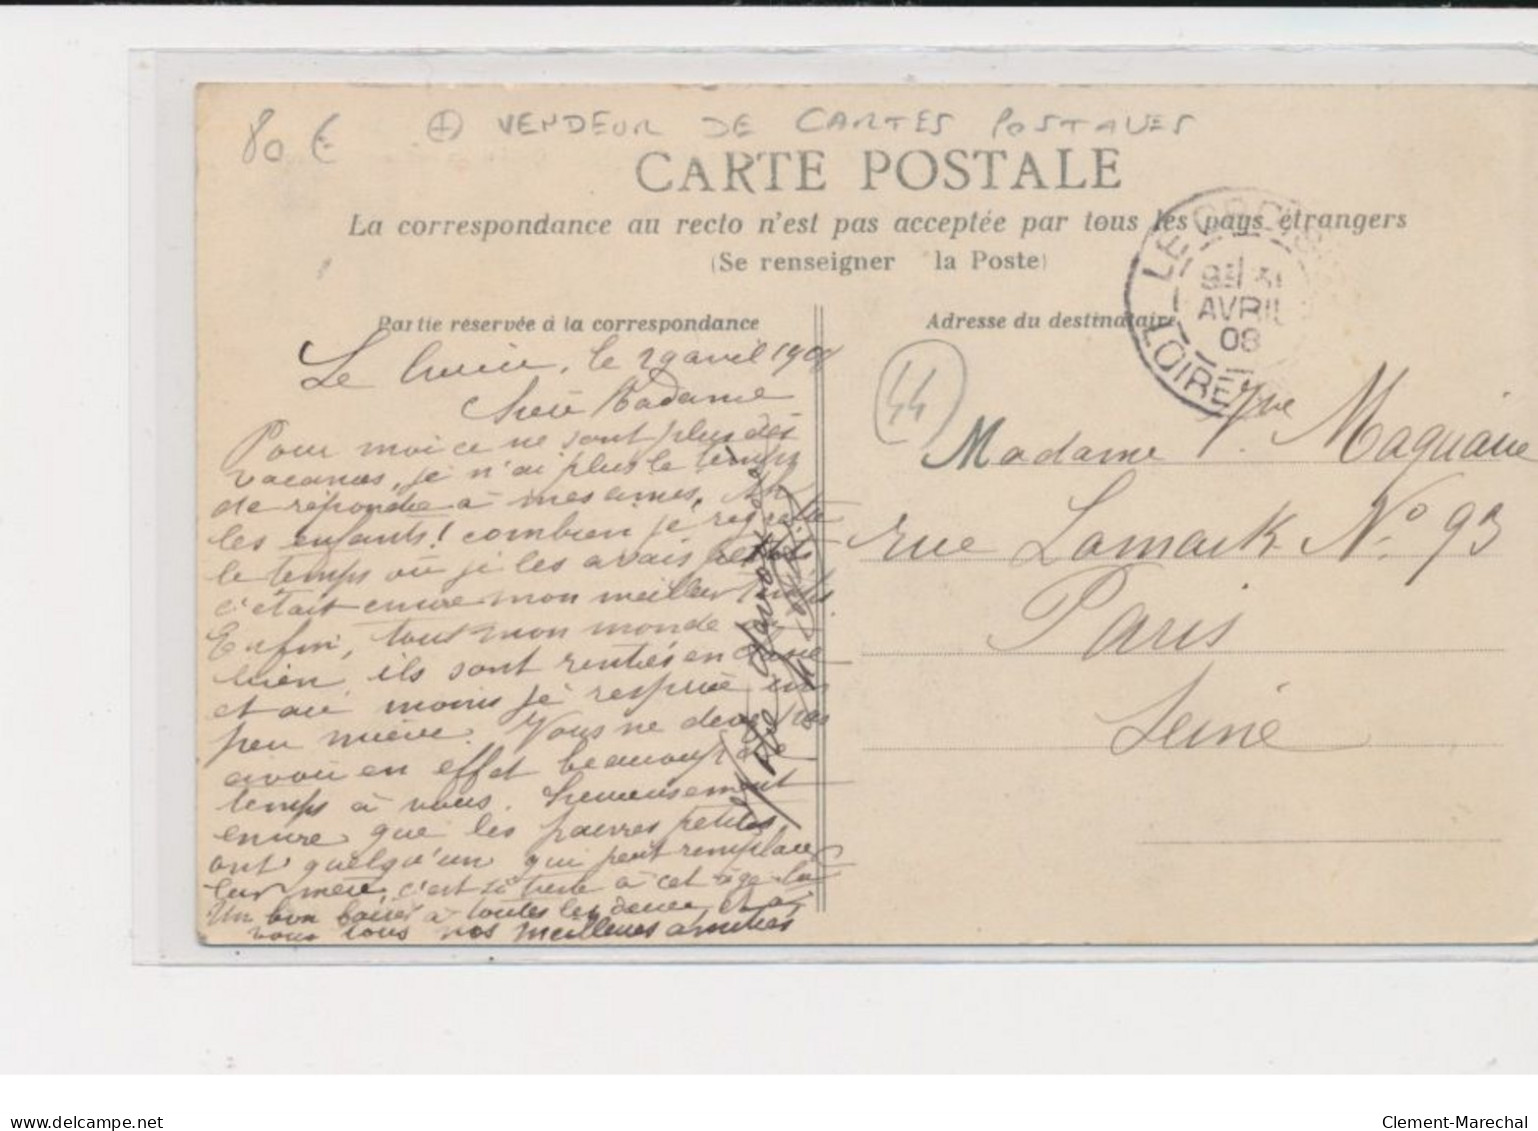 80 € + VENDEUR DE CARTES POSTALES
CARTE POSTALE
La correspondance au recto n'est pas acceptée par tous les pays étrangers
(Se renseigner la Poste)
Partie réservée à la correspondance
Le, le 29 avril 1908
Chère Madame
Pour moi ce ne sont plus des
vacances, je n'ai plus le temps
de répondre à mes amis. Ah
les enfants! combien je regrette
le temps où je les avais petits
c'était encore mon meilleur temps.
Enfin, tout mon monde va
bien, ils sont rentrés en classe
et au moins je respire un
peu mieux. Vous ne devez pas
avoir en effet beaucoup de
temps à vous. Heureusement
encore que les pauvres petites
ont quelqu'un qui peut remplacer
leur mère, c'est si triste à cet âge-là
Un bon baiser à toutes les deux et à
vous tous nos meilleures amitiés
Adresse du destinataire
LE
31
AVRIL
08
LOIRE
44
Madame Vve Maguaire
rue Lamark No 93
Paris
Seine
delcampe.net
Clement-Marechal